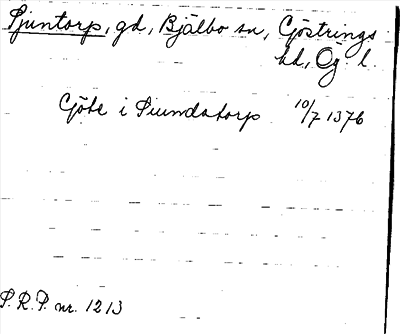 Sjuntorp, gd, Bjälbo sn, Göstrings
hd, Ög l.
Göte i Siundatorp 10/7 1376
S. R. P. nr. 1213